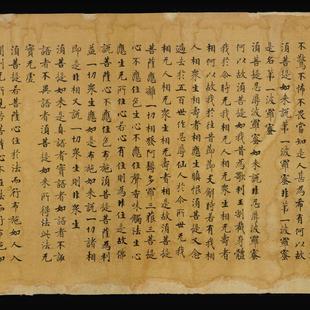 不驚不怖不畏當知是人甚為希有何以故
須菩提如来說第一波羅蜜非第一波羅蜜
是名第一波羅蜜
須菩提忍辱波羅蜜如来說非忍辱波羅蜜
何以故須菩提如我昔為歌利王割截身體
我於尒時无我相无人相无眾生相无壽者
相何以故我於往昔節節支解時若有我相
人相眾生相壽者相應生瞋恨須菩提又念
過去於五百世作忍辱仙人於尒所世无我
相无人相无眾生相无壽者相是故須菩提
菩薩應離一切相發阿耨多羅三藐三菩提
心不應住色生心不應住聲香味觸法生心
應生无所住心若心有住則為非住是故佛
說菩薩心不應住色布施須菩提菩薩為利
益一切眾生應如是布施如来說一切諸相
即是非相又說一切眾生則非眾生
須菩提如来是真語者實語者如語者不誑
語者不異語者須菩提如来所得法此法无
實无虛
須菩提若菩薩心住於法而行布施如人入
闇則无所見若菩薩心不住法而行布施如